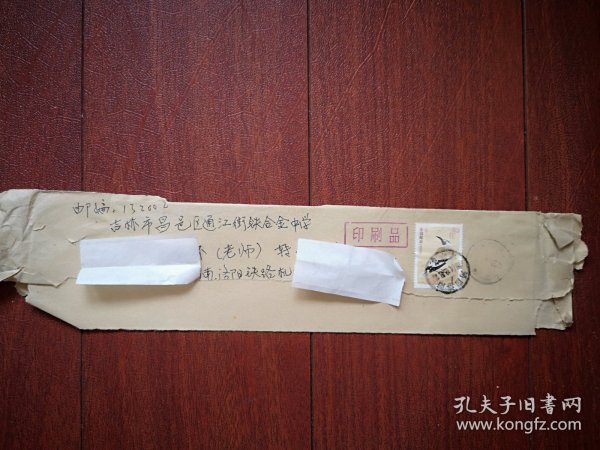 邮编：132002
吉林市昌邑区通江街铁合金中学
（老师） 转
南洛阳铁路札
印刷品
孔夫子旧书网
www.kongfz.com